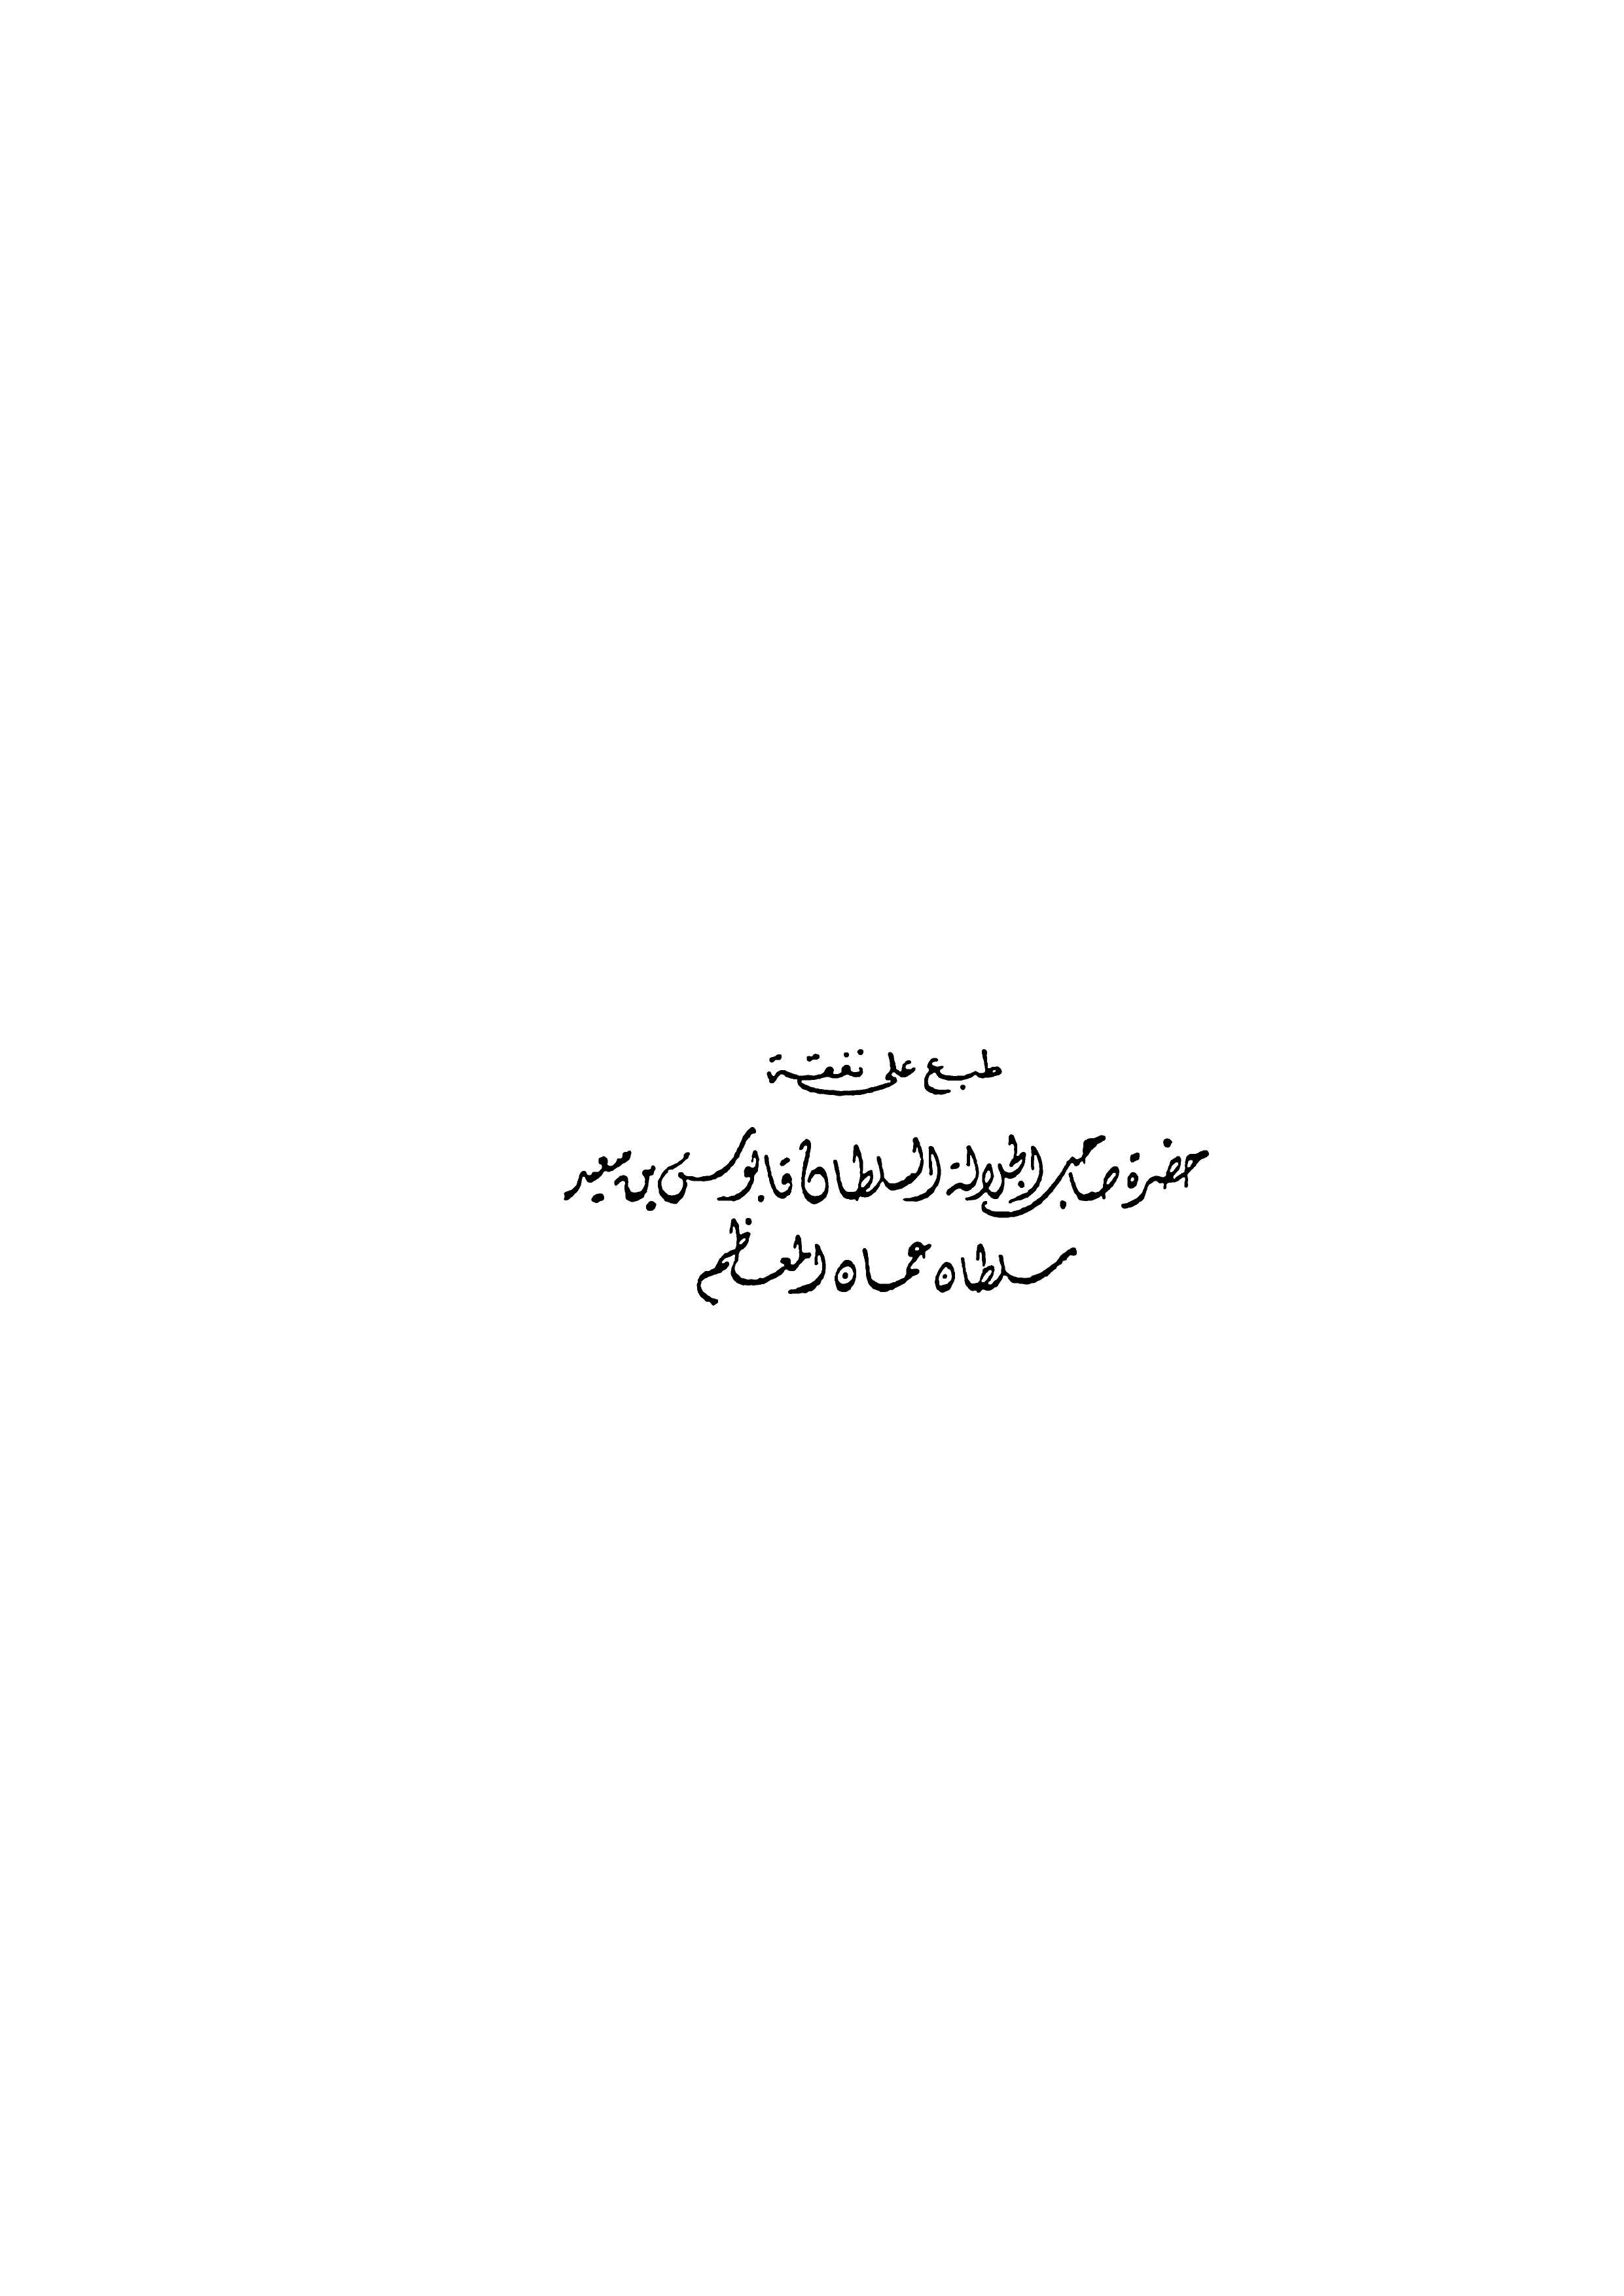 طبع على نفقة
حضرة صاحب الجلالة السلطان قابوس بن سعيد
سلطان عمان المعظم